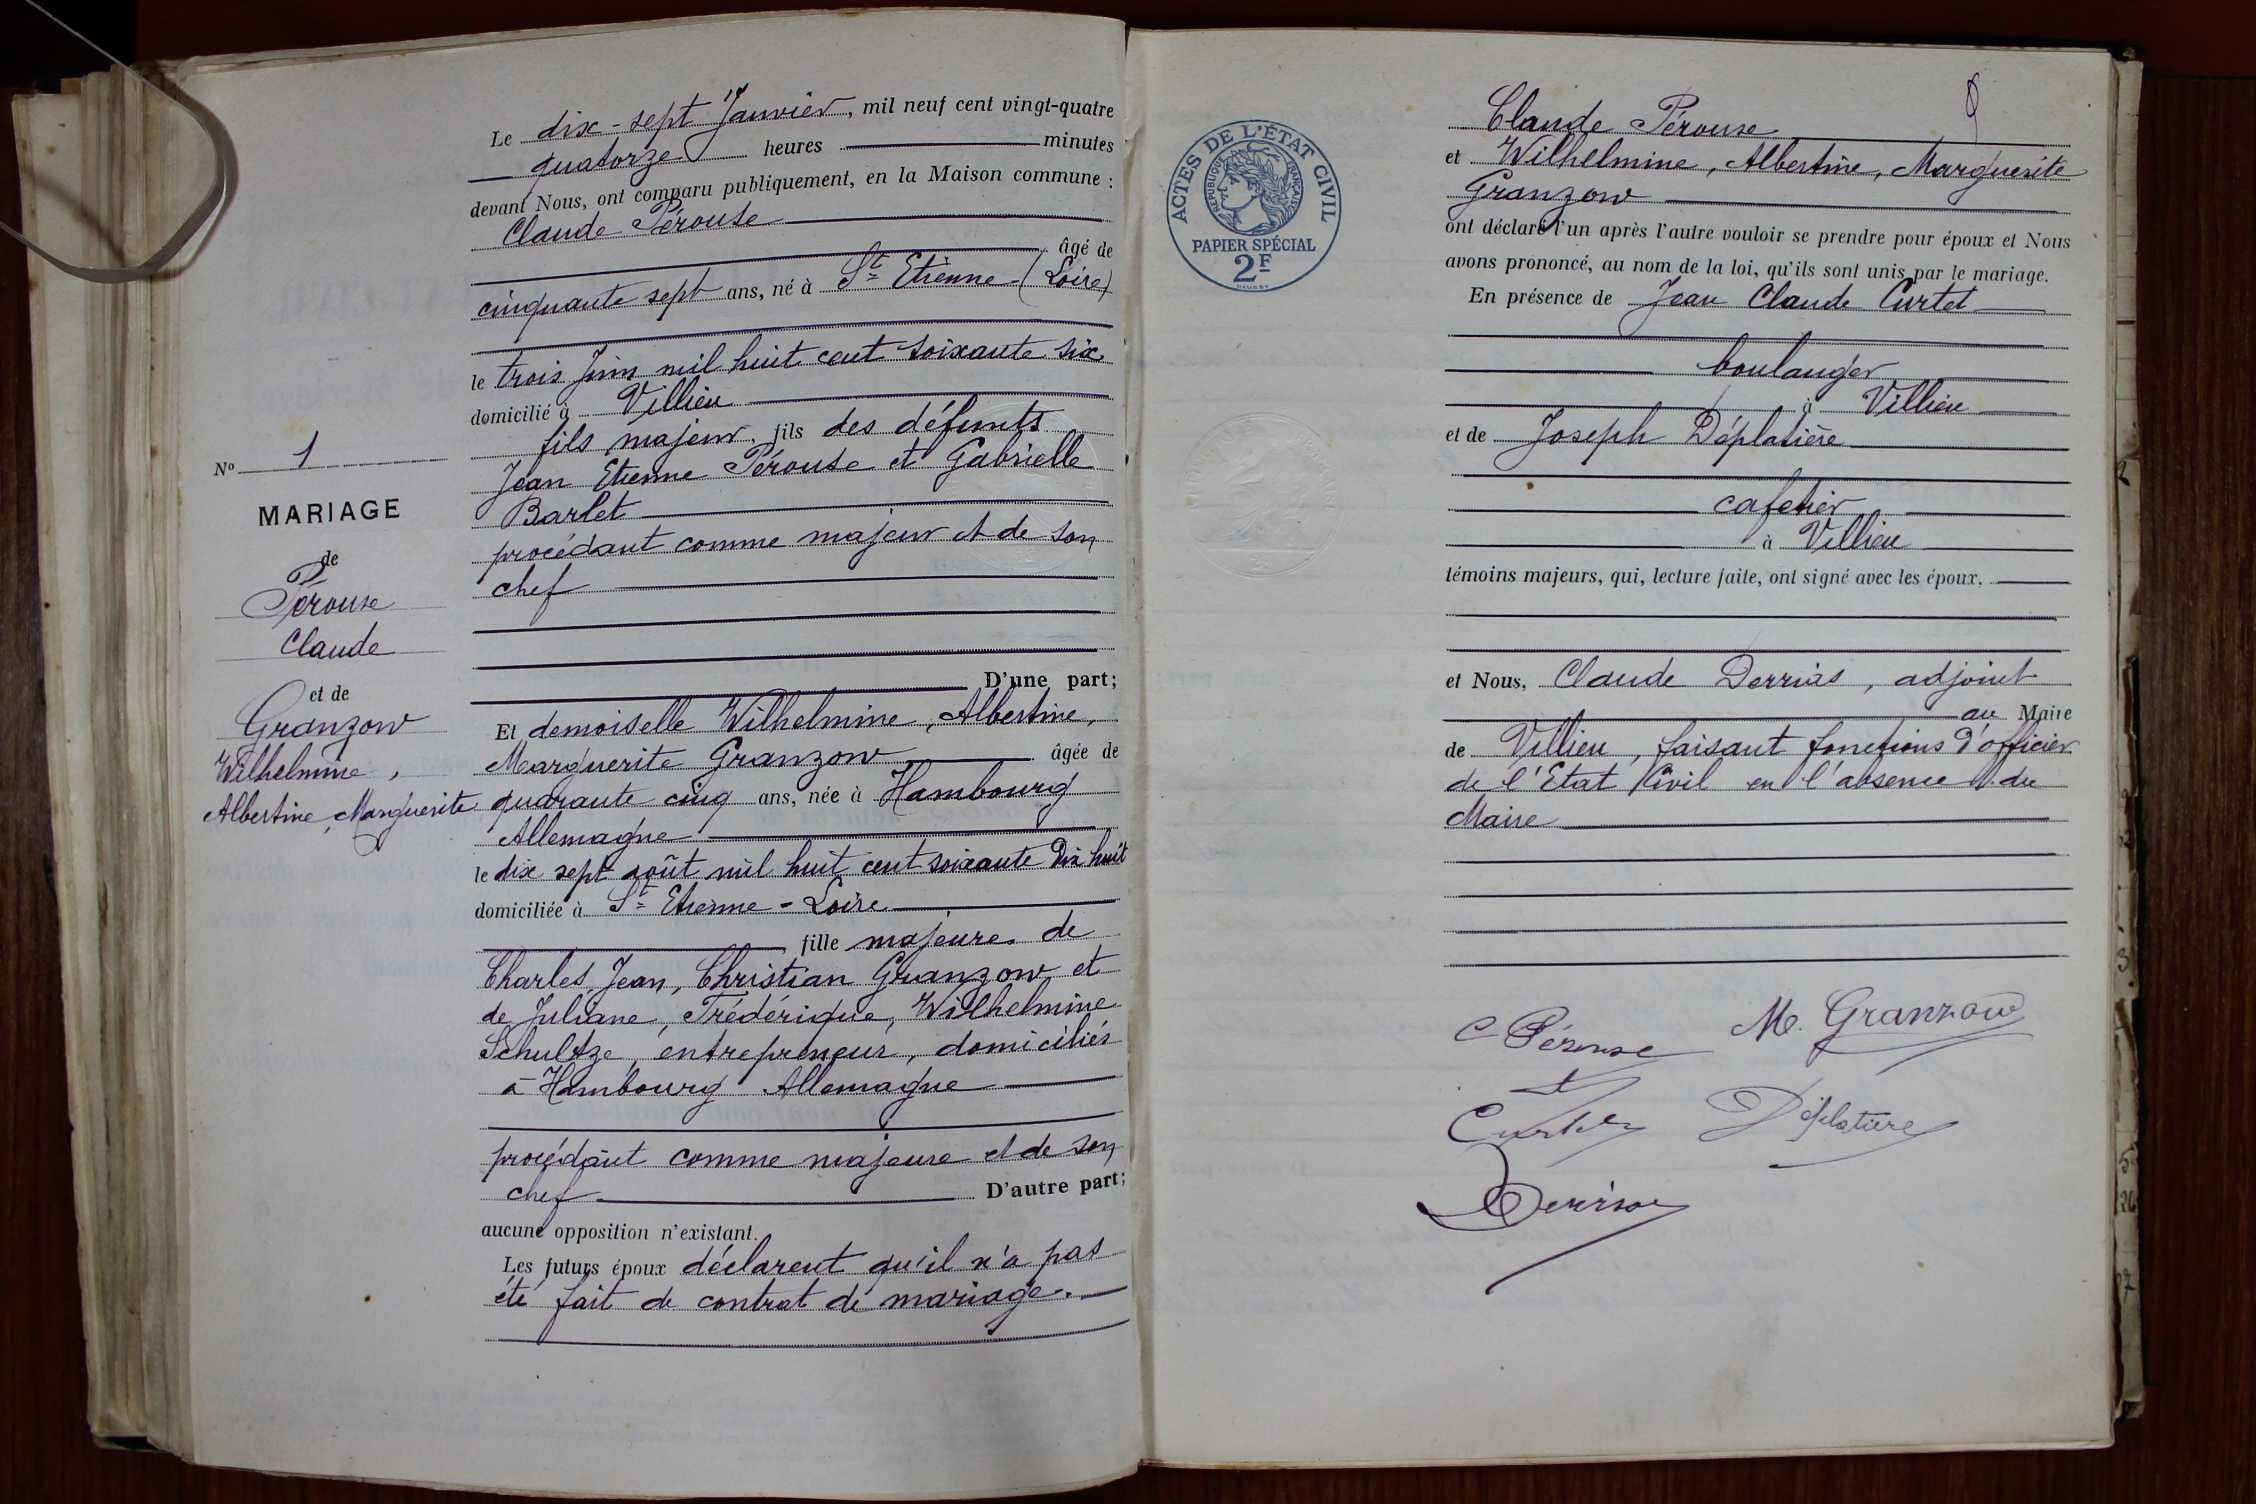 Le dix-sept Janvier, mil neuf cent vingt-quatre
quatorze heures minutes
devant Nous, ont comparu publiquement, en la Maison commune :
Claude Pérouse
âgé de
cinquante sept ans, né à St Etienne - (Loire)
le trois Juin mil huit cent soixante six
domicilié à Villieu
fils majeur, fils des défunts
Jean Etienne Pérouse et Gabrielle
Barlet
procédant comme majeur et de son
chef
D'une part;
No 1
MARIAGE
de
Pérouse
Claude
et de
Granzow
Wilhelmine,
Albertine, Marguerite
Et demoiselle Wilhelmine, Albertine,
Marguerite Granzow âgée de
quarante cinq ans, née à Hambourg
Allemagne
le dix sept août mil huit cent soixante Dix huit
domiciliée à St Etienne - Loire
fille majeure de
Charles, Jean, Christian Granzow et
de Juliane, Frédérique, Wilhelmine
Schultze, entrepreneur, domiciliés
à Hambourg Allemagne
procédant comme majeure et de son
chef D'autre part;
aucune opposition n'existant.
Les futurs époux déclarent qu'il n'a pas
été fait de contrat de mariage.
ACTES DE L'ÉTAT CIVIL
RÉPUBLIQUE FRANÇAISE
PAPIER SPÉCIAL
2F
Claude Pérouse
et Wilhelmine, Albertine, Marguerite
Granzow
ont déclaré l'un après l'autre vouloir se prendre pour époux et Nous
avons prononcé, au nom de la loi, qu'ils sont unis par le mariage.
En présence de Jean Claude Curtet
boulanger
à Villieu
et de Joseph Déplatière
cafetier
à Villieu
témoins majeurs, qui, lecture faite, ont signé avec les époux.
et Nous, Claude , adjoint
au Maire
de Villieu, faisant fonctions d'officier
de l'Etat Civil en l'absence du
Maire
C Pérouse M. Granzow
Curtet Déplatière